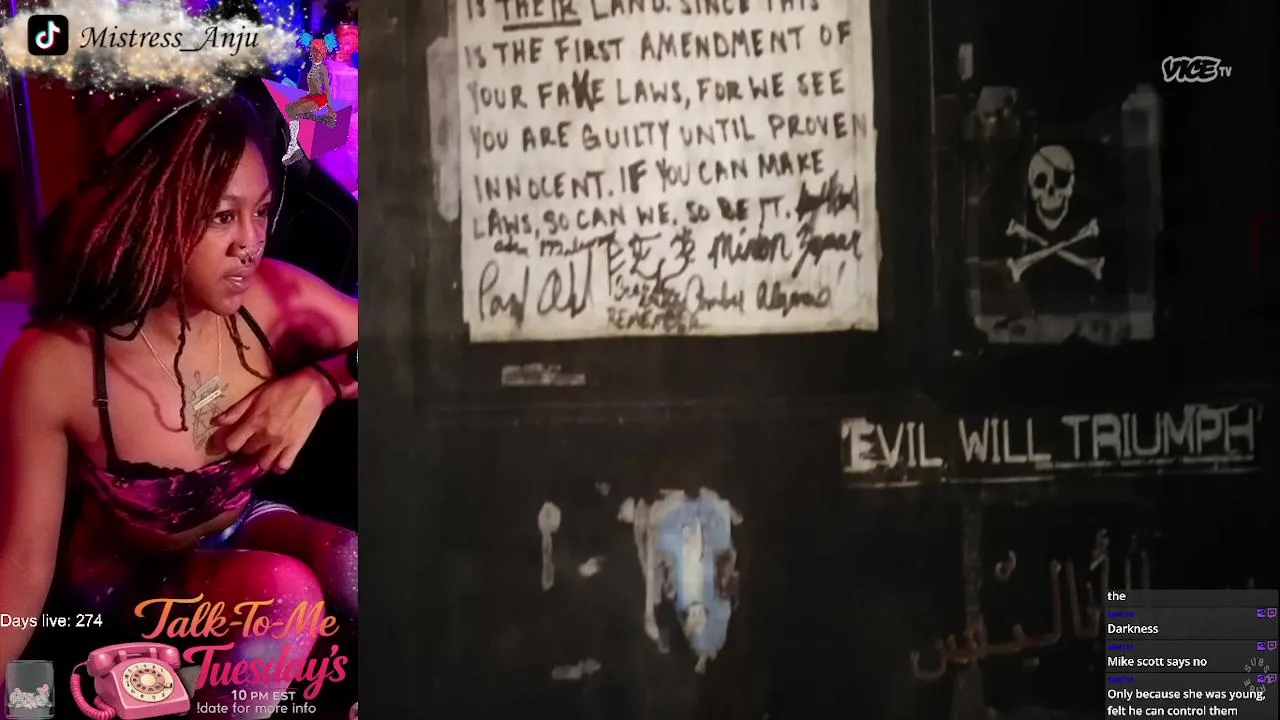 Mistress_Anju
IS THEIR LAND. SINCE THIS
IS THE FIRST AMENDMENT OF
YOUR FAKE LAWS, FOR WE SEE
YOU ARE GUILTY UNTIL PROVEN
INNOCENT. IF YOU CAN MAKE
LAWS, SO CAN WE. SO BE IT.
REMEMBER
VICE TV
EVIL WILL TRIUMPH
Days live: 274
Talk-To-Me
Tuesday's
10 PM EST
!date for more info
the
Darkness
Mike scott says no
Only because she was young,
felt he can control them